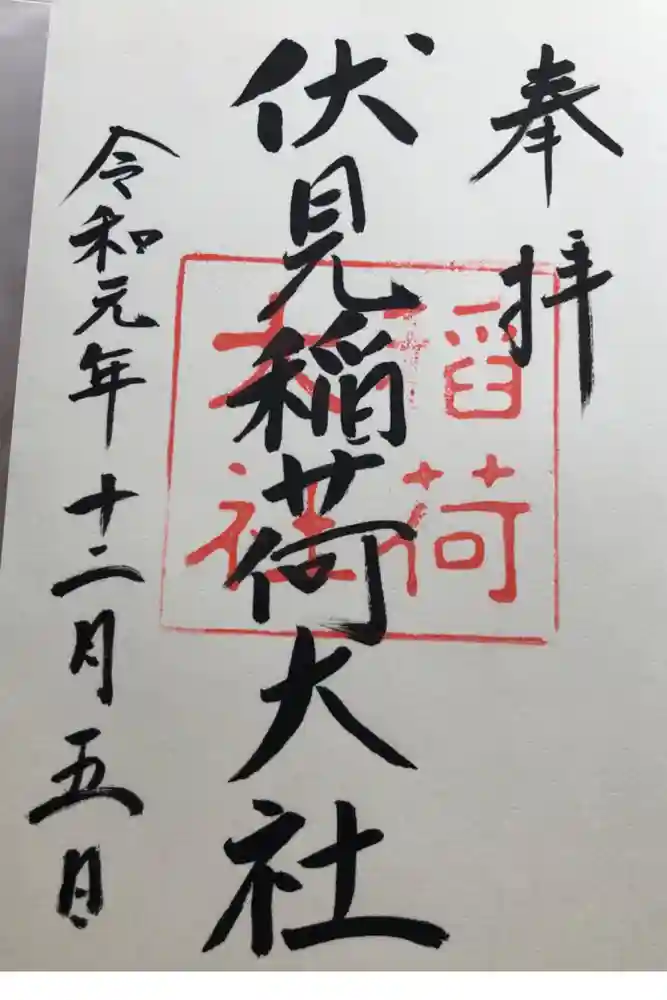 奉拝
伏見稲荷大社
稲荷
大社
令和元年十二月五日